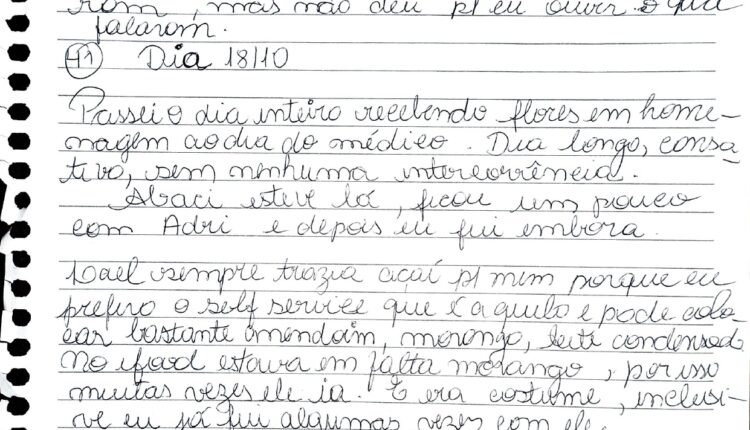 ram, mas não deu p/ eu ouvir o que
falaram.
41 Dia 18/10
Passei o dia inteiro recebendo flores em home-
nagem ao dia do médico. Dia longo, cansa-
tivo, sem nenhuma intercorrência.
Abaci esteve lá, ficou um pouco
com Adri e depois eu fui embora.
Dael sempre trazia açaí p/ mim porque eu
prefiro o self service que é a quilo e pode colo-
car bastante amendoim, morango, leite condensad
No ifood estava em falta morango, por isso
muitas vezes ele ia. E era costume, inclusi-
ve eu já fui algumas vezes com ele.